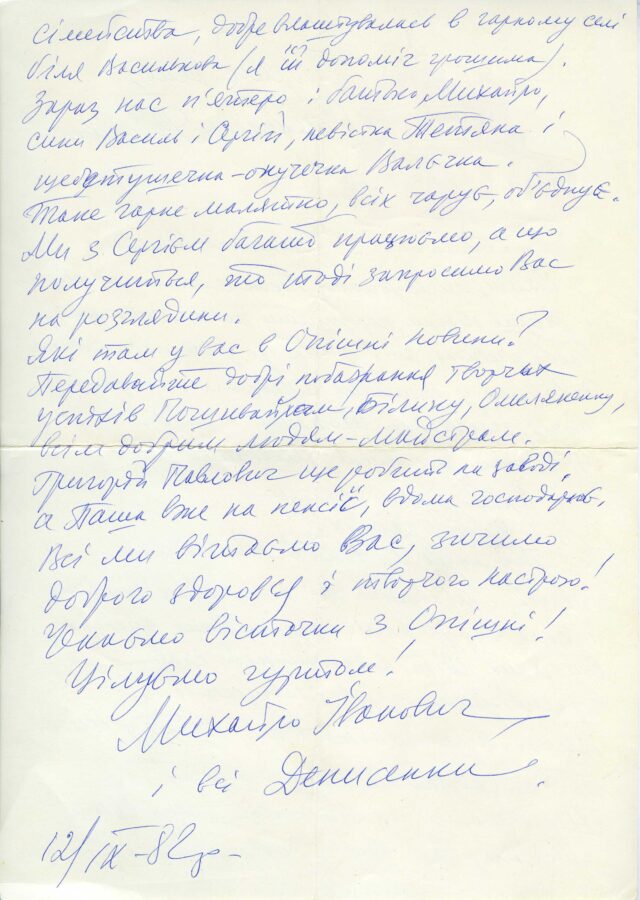 сімейства, добре влаштувалась в гарному селі
біля Василькова (я їй допоміг грошима).
Зараз нас п'ятеро: батько Михайло,
сини Василь і Сергій, невістка Тетяна і
щебетушечка-онучечка Валечка.
Таке гарне малятко, всіх чарує, об'єднує.
Ми з Сергієм багато працюємо, а що
получиться, то тоді запросимо Вас
на розглядини.
Які там у вас в Опішні новини?
Передавайте добрі побажання творчих
успіхів Пошивайлам, Білику, Омеляненку,
всім добрим людям-майстрам.
Григорій Павлович ще робить на заводі,
а Паша вже на пенсії, вдома господарює.
Всі ми вітаємо Вас, зичимо
доброго здоров'я і творчого настрою!
Чекаємо вісточки з Опішні!
Цілуємо гуртом!
Михайло Іванович
і всі Денисенки.
12/IX-82р-